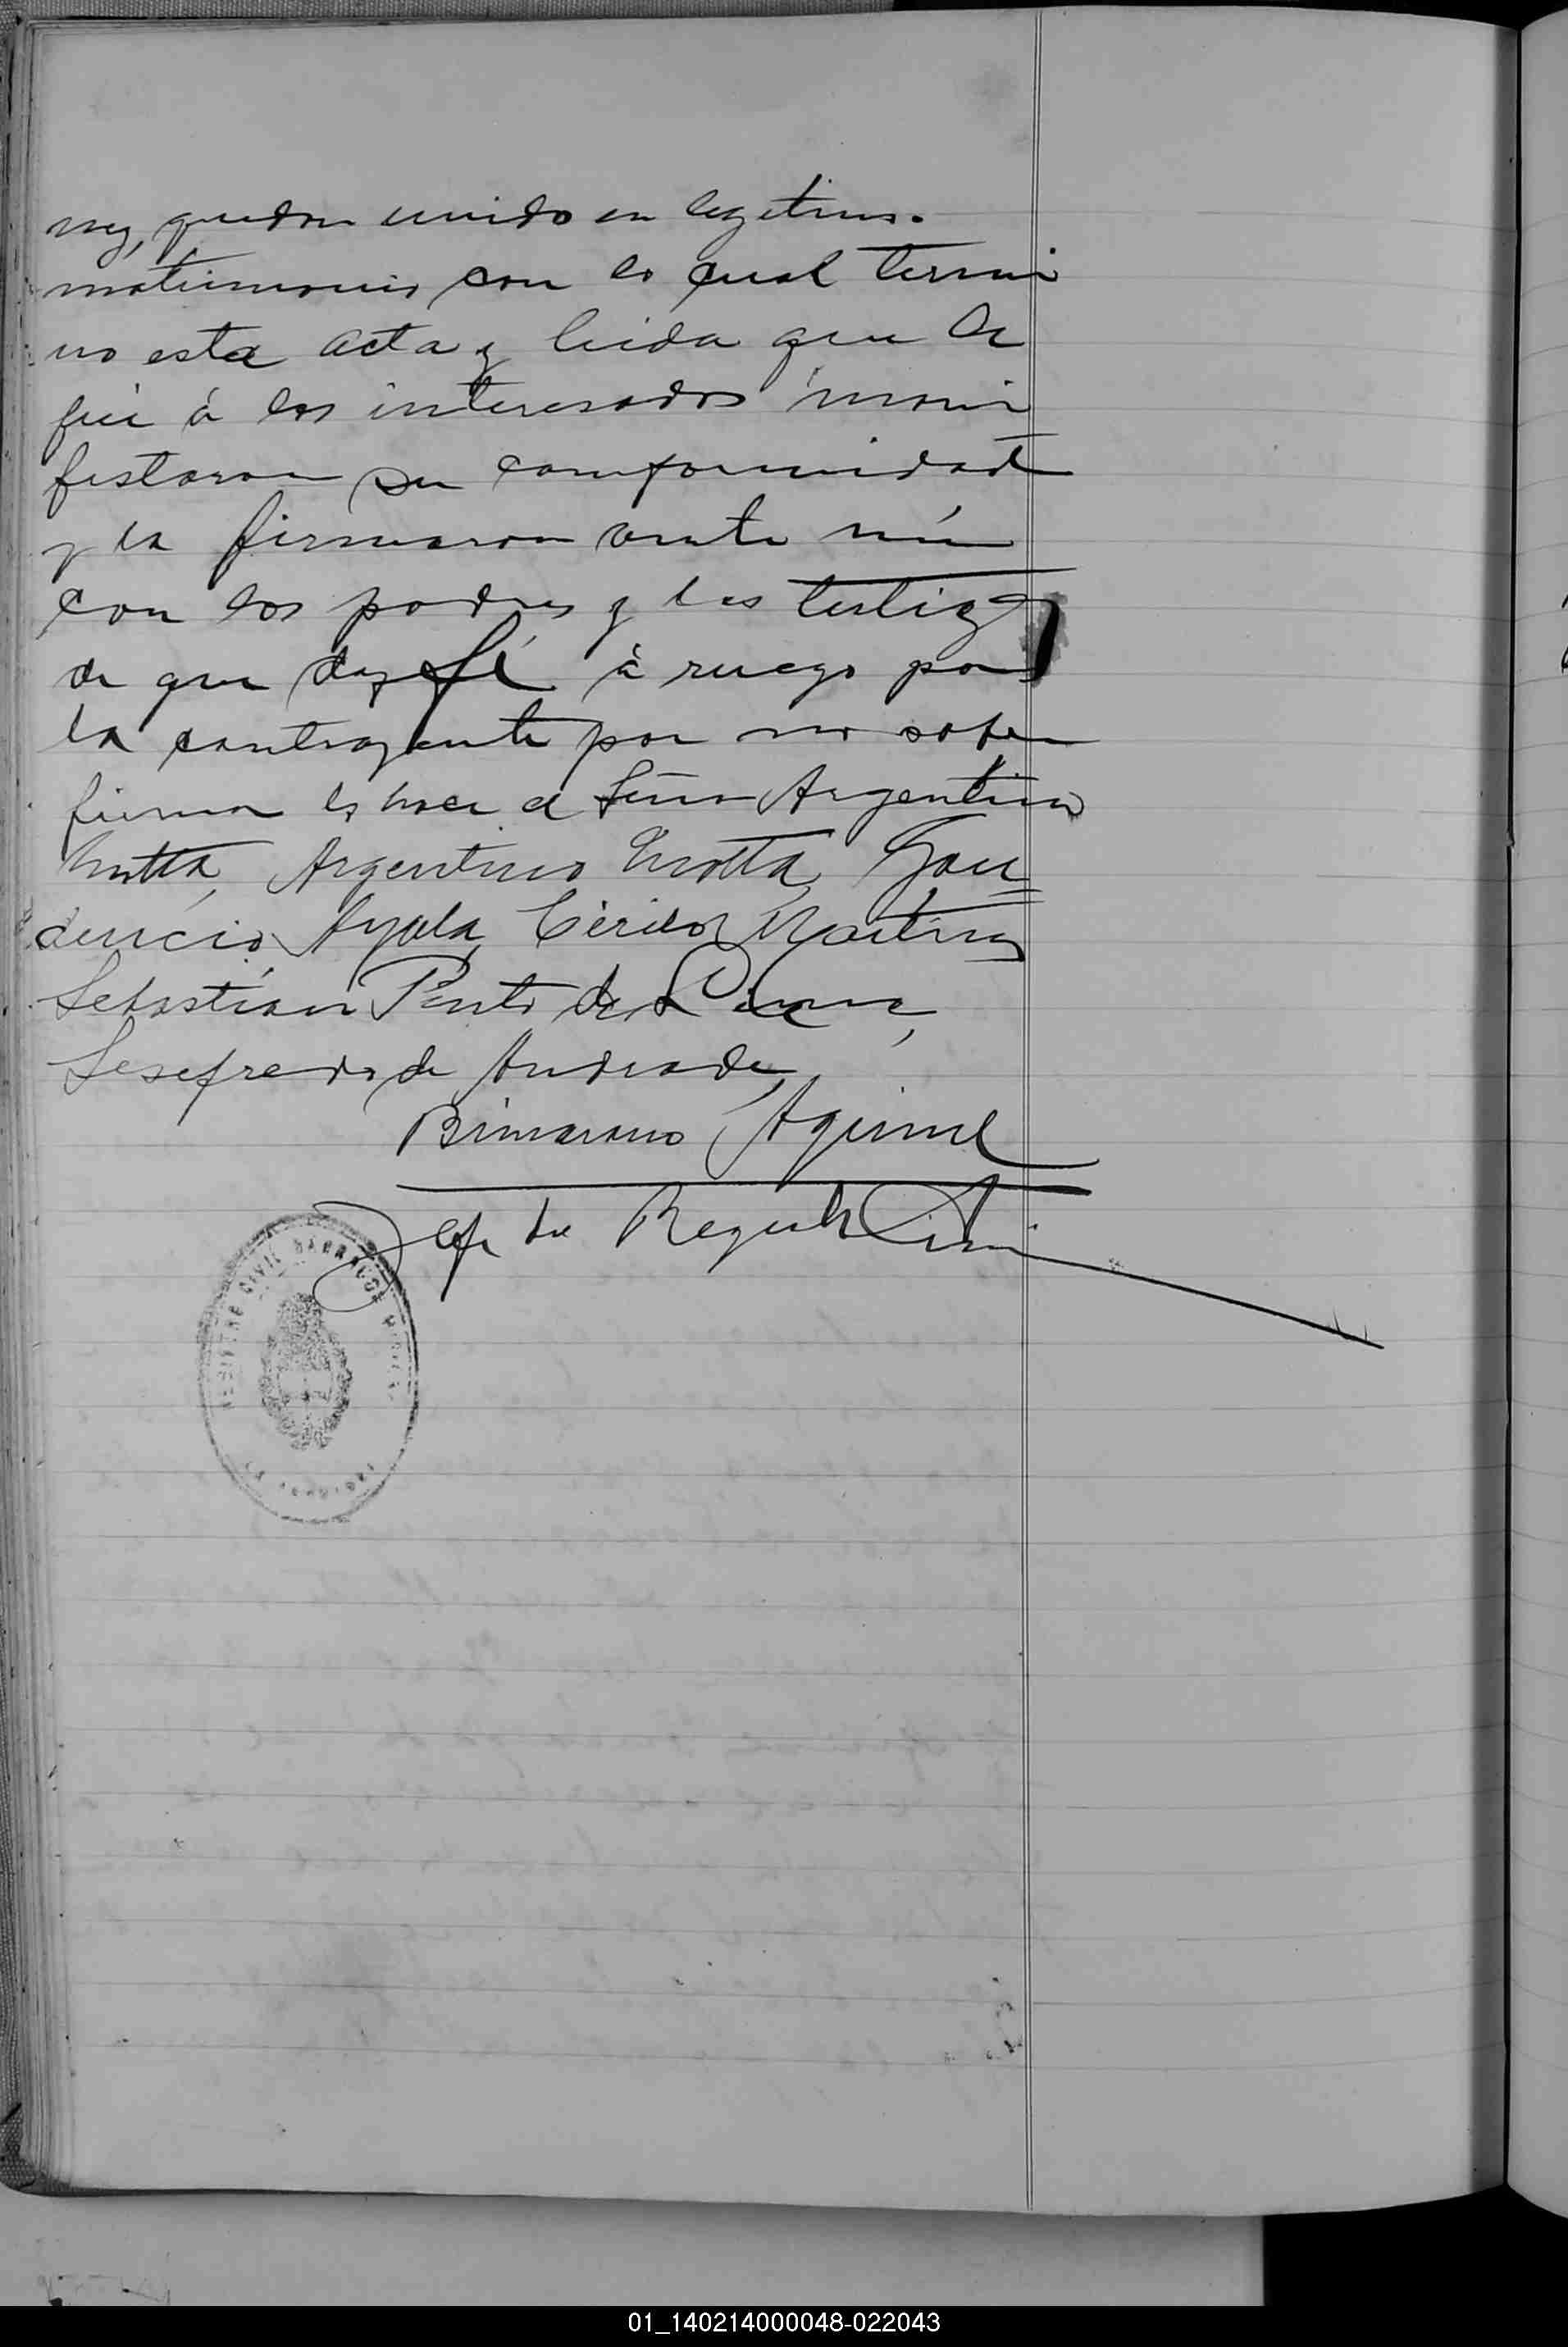 quedan unido en legitimo.
matrimonio con lo cual termi
no esta acta y leida que le
fué á los interesados mani
festaron su comformidad
y la firmaron ante mi
con los padres y los testigo
de que doy fé á ruego por
la contrayente por no saber
firmar lo hace el Señor Argentino
Motta, Argentino Motta, Gau=
dencio Ayala, Cirilo Martinez
Sebastian Pinto de Lima,
Sesefredo de Andrade,
Bimarano Aguirre
Jefe del Registro Civil
REGISTRO CIVIL BARRACON
01_140214000048-022043